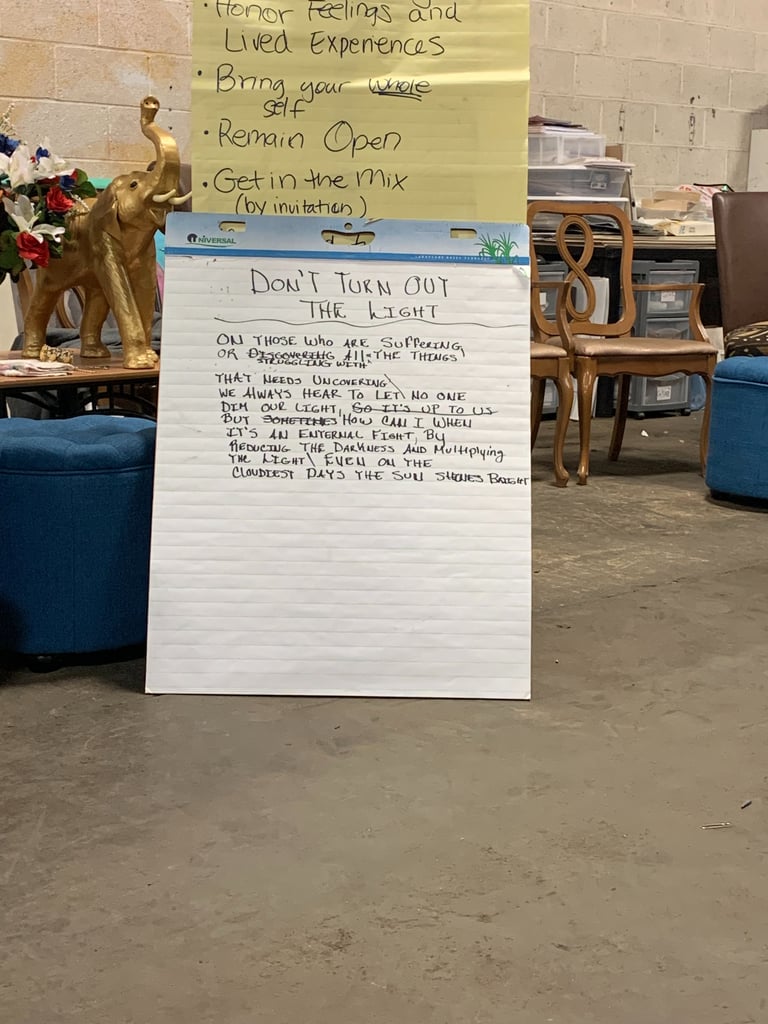 • Honor Feelings and
Lived Experiences
• Bring your whole
self
• Remain Open
• Get in the Mix
(by invitation)
UNIVERSAL
DON'T TURN OUT
THE LIGHT
ON THOSE WHO ARE SUFFERING,
OR DISCOVERING All THE THINGS
STRUGGLING WITH
THAT NEEDS UNCOVERING
WE ALWAYS HEAR TO LET NO ONE
DIM OUR LIGHT, SO IT'S UP TO US
BUT SOMETIMES HOW CAN I WHEN
IT'S AN ENTERNAL FIGHT, BY
REDUCING THE DARKNESS AND Multiplying
THE LIGHT\ EVEN ON THE
CLOUDIEST DAYS THE SUN SHINES BRIGHT